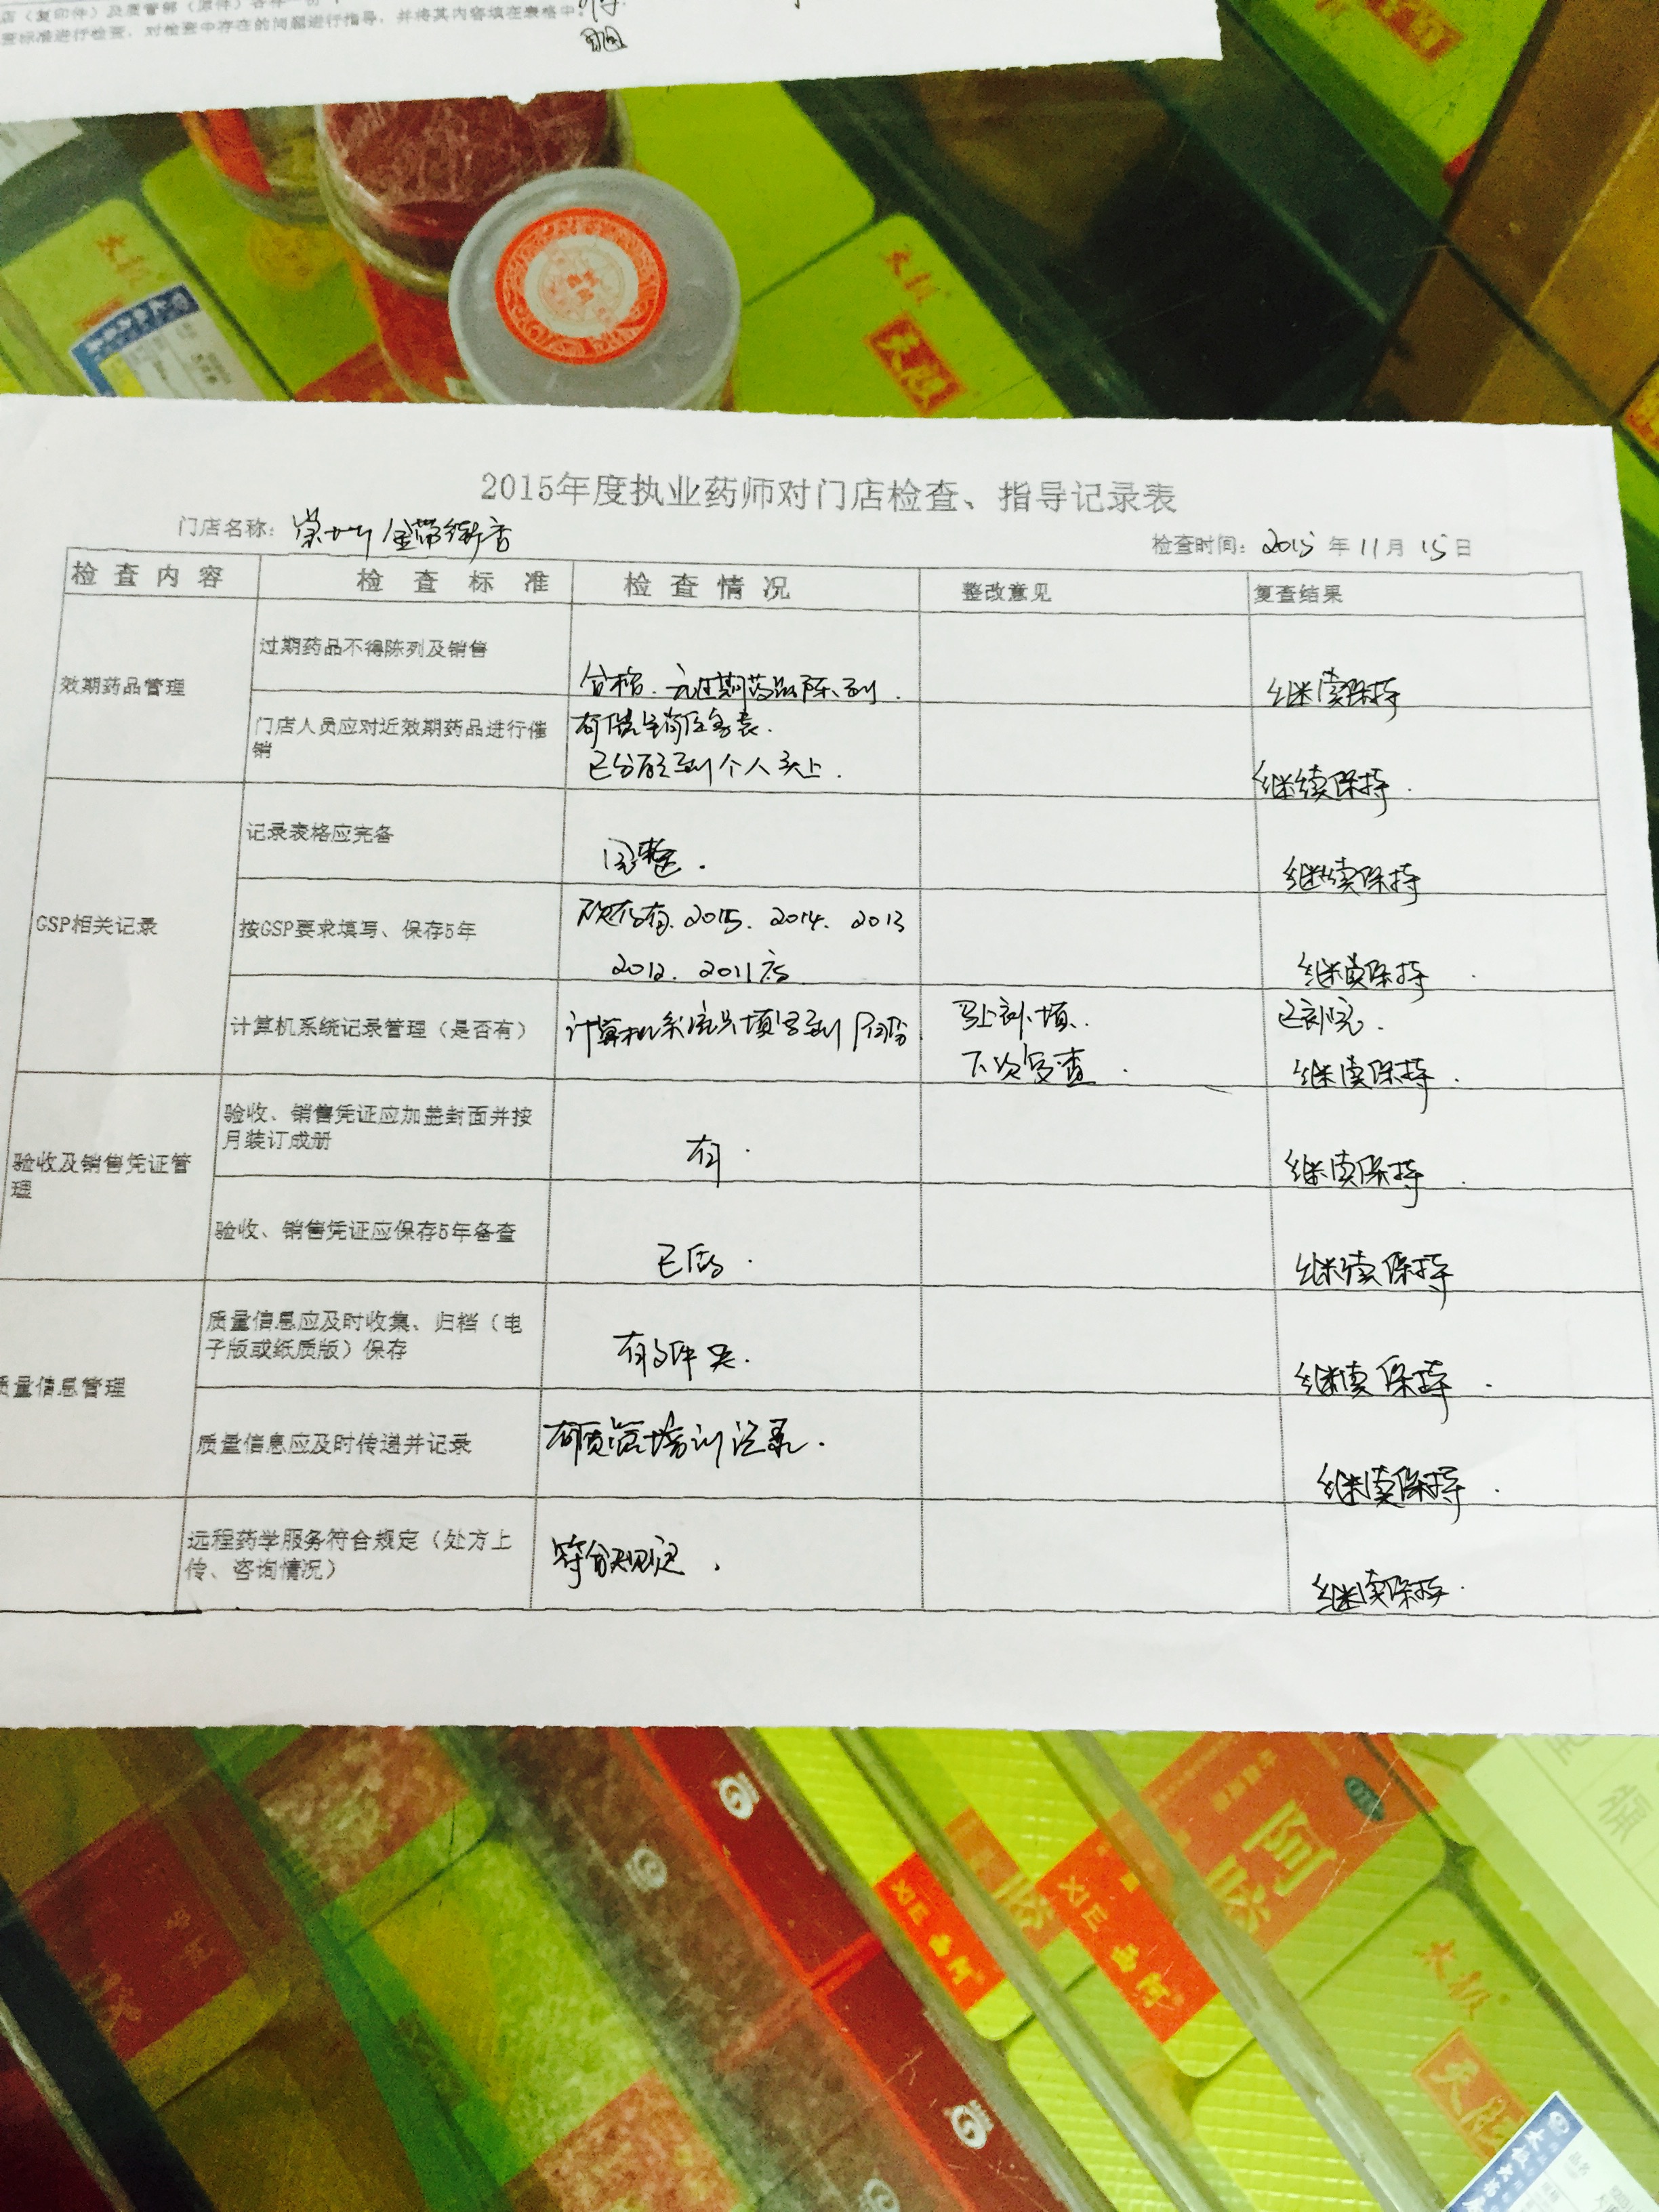 店（复印件）及质管部（原件）各存一份
查标准进行检查，对检查中存在的问题进行指导，并将其内容填在表格中。
太极
天胶
2015年度执业药师对门店检查、指导记录表
门店名称：崇州金带街店
检查时间：2015年11月15日
检查内容 检查标准 检查情况 整改意见 复查结果
效期药品管理
过期药品不得陈列及销售 合格.无过期药品陈列. 继续保持
门店人员应对近效期药品进行催销 有催销任务表. 已分配到个人头上. 继续保持.
GSP相关记录
记录表格应完备 完整. 继续保持
按GSP要求填写、保存5年 2015.2014.2013
2012.2011 继续保持.
计算机系统记录管理（是否有） 计算机系统只填写到 月份 马上补填. 已补完.
下次复查. 继续保持.
验收及销售凭证管理
验收、销售凭证应加盖封面并按月装订成册 有. 继续保持.
验收、销售凭证应保存5年备查 已 . 继续保持
质量信息管理
质量信息应及时收集、归档（电子版或纸质版）保存 有文件夹. 继续保持.
质量信息应及时传递并记录 有 培训记录. 继续保持.
远程药学服务符合规定（处方上传、咨询情况） 符合规定. 继续保持.
阿胶
XIE
XIE
太极
天胶